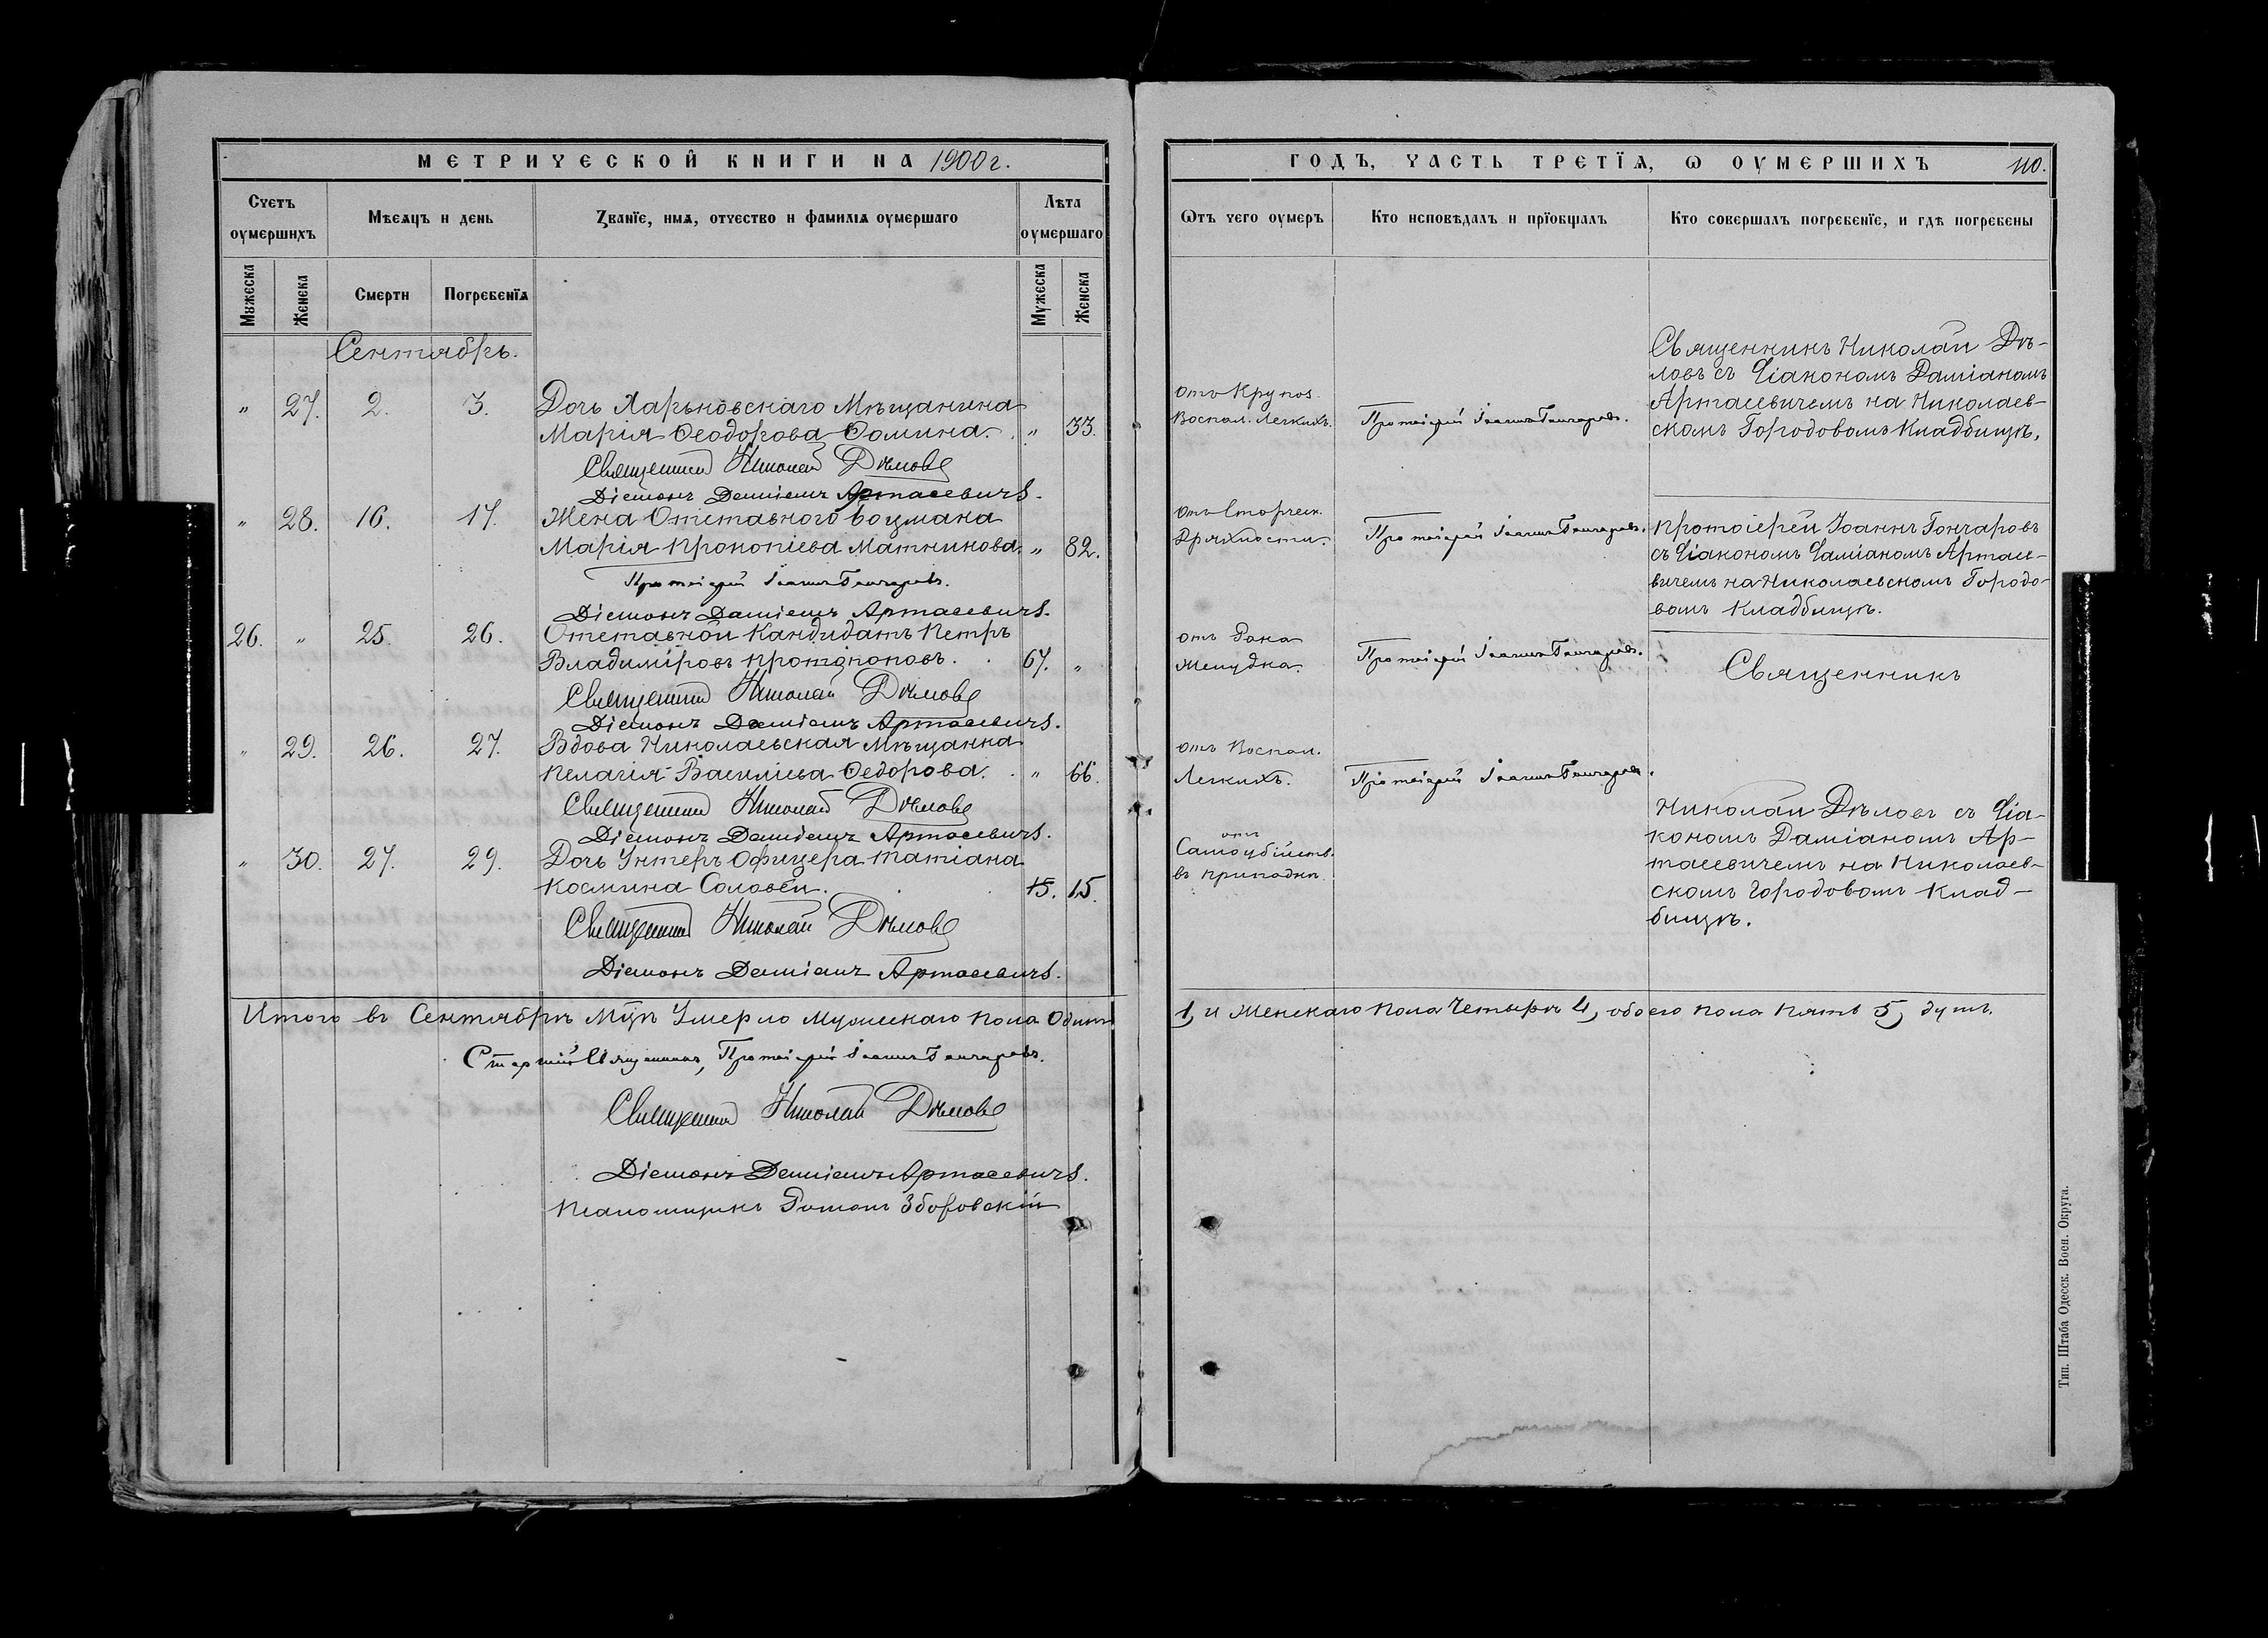 МЕТРИЧЕСКОЙ КНИГИ НА 1900 г.
Счетъ умершихъ
Мѣсяцъ и день
Званїе, имя, отчество и фамилїя умершаго
Лѣта умершаго
Мужеска
Женска
Смерти
Погребенїя
Мужеска
Женска
Сентябрь.
" 27. 2. 3. Дочь Харьковскаго Мѣщанина
Марія Ѳеодорова Ѳомина. " 33.
Священникъ Николай Дѣловъ
Діаконъ Даміанъ Артасевичъ.
" 28. 16. 17. Жена Отставного боцмана
Марія Прокопіева Матникова. " 82.
Протоіерей Іоаннъ Гончаровъ.
Діаконъ Даміанъ Артасевичъ.
26. " 25. 26. Отставной Кандидатъ Петръ
Владиміровъ Протопоповъ. 67. "
Священникъ Николай Дѣловъ
Діаконъ Даміанъ Артасевичъ.
" 29. 26. 27. Вдова Николаевская Мѣщанка
Пелагія Василіева Ѳедорова. " 66.
Священникъ Николай Дѣловъ
Діаконъ Даміанъ Артасевичъ.
" 30. 27. 29. Дочь Унтеръ Офицера Татіана
Космина Соловей. 15. 15.
Священникъ Николай Дѣловъ
Діаконъ Даміанъ Артасевичъ.
Итого въ Сентябрѣ Мцѣ Умерло Мужескаго пола Одинъ
Старшій Священникъ, Протоіерей Іоаннъ Гончаровъ.
Священникъ Николай Дѣловъ
Діаконъ Даміанъ Артасевичъ.
Псаломщикъ Романъ Зборовскій
ГОДЪ, ЧАСТЬ ТРЕТЇЯ, Ѡ ОУМЕРШИХЪ 110.
Ѡтъ чего оумеръ
Кто исповѣдалъ и прїобщалъ
Кто совершалъ погребенїе, и гдѣ погребены
Священникъ Николай Дѣ-
ловъ съ Діакономъ Даміаномъ
Артасевичемъ на Николаев-
скомъ Городовомъ Кладбищѣ.
отъ Крупоз.
Воспал. Легкихъ.
Протоіерей Іоаннъ Гончаровъ.
отъ Старческ.
Дряхлости.
Протоіерей Іоаннъ Гончаровъ.
Протоіерей Іоаннъ Гончаровъ
съ Діакономъ Даміаномъ Артасе-
вичемъ на Николаевскомъ Городо-
вомъ Кладбищѣ.
отъ Рака
Желудка.
Протоіерей Іоаннъ Гончаровъ.
Священникъ
отъ Воспал.
Легкихъ.
Протоіерей Іоаннъ Гончаровъ.
Николай Дѣловъ съ Діа-
кономъ Даміаномъ Ар-
тасевичемъ на Николаев-
скомъ Городовомъ Клад-
бищѣ.
отъ
Самоубійств.
въ припадкѣ
1, и Женскаго пола Четыре 4, обоего пола Пять 5, душъ.
Тип. Штаба Одесск. Воен. Округа.